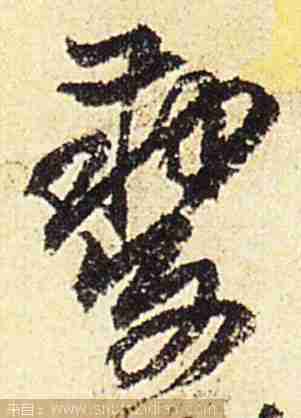 藝
来自：www.shufazidian.com